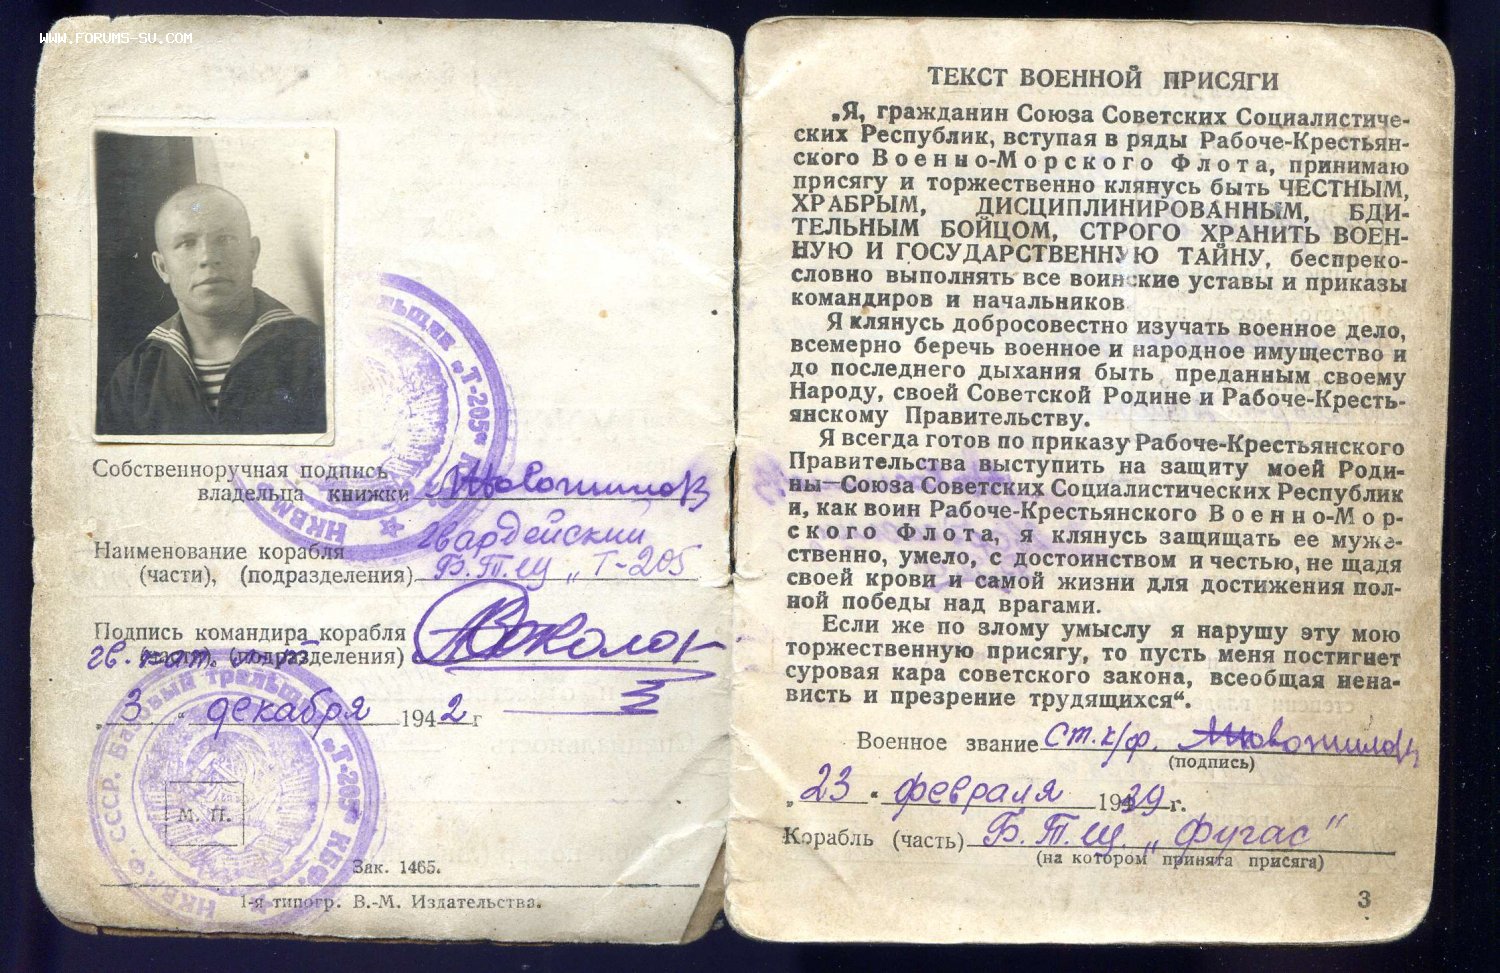 WWW.FORUMS-SU.COM
Собственноручная подпись
владельца книжки Новожилов
Наименование корабля Гвардейский
(части), (подразделения) Б.Т.Щ „Т-205
Подпись командира корабля
(части), (подразделения)
„3" декабря 1942 г
М. П.
НКВМФ СССР. Базовый тральщик „Т-205" КБФ.
Зак. 1465.
1-я типогр. В.-М. Издательства.
ТЕКСТ ВОЕННОЙ ПРИСЯГИ
„Я, гражданин Союза Советских Социалистиче-
ских Республик, вступая в ряды Рабоче-Крестьян-
ского Военно-Морского Флота, принимаю
присягу и торжественно клянусь быть ЧЕСТНЫМ,
ХРАБРЫМ, ДИСЦИПЛИНИРОВАННЫМ, БДИ-
ТЕЛЬНЫМ БОЙЦОМ, СТРОГО ХРАНИТЬ ВОЕН-
НУЮ И ГОСУДАРСТВЕННУЮ ТАЙНУ, беспреко-
словно выполнять все воинские уставы и приказы
командиров и начальников.
Я клянусь добросовестно изучать военное дело,
всемерно беречь военное и народное имущество и
до последнего дыхания быть преданным своему
Народу, своей Советской Родине и Рабоче-Кресть-
янскому Правительству.
Я всегда готов по приказу Рабоче-Крестьянского
Правительства выступить на защиту моей Роди-
ны—Союза Советских Социалистических Республик
и, как воин Рабоче-Крестьянского Военно-Мор-
ского Флота, я клянусь защищать ее муже-
ственно, умело, с достоинством и честью, не щадя
своей крови и самой жизни для достижения пол-
ной победы над врагами.
Если же по злому умыслу я нарушу эту мою
торжественную присягу, то пусть меня постигнет
суровая кара советского закона, всеобщая нена-
висть и презрение трудящихся“.
Военное звание ст. к/ф. Новожилов
(подпись)
„23" февраля 1939 г.
Корабль (часть) Б.Т.Щ. „Фугас"
(на котором принята присяга)
3